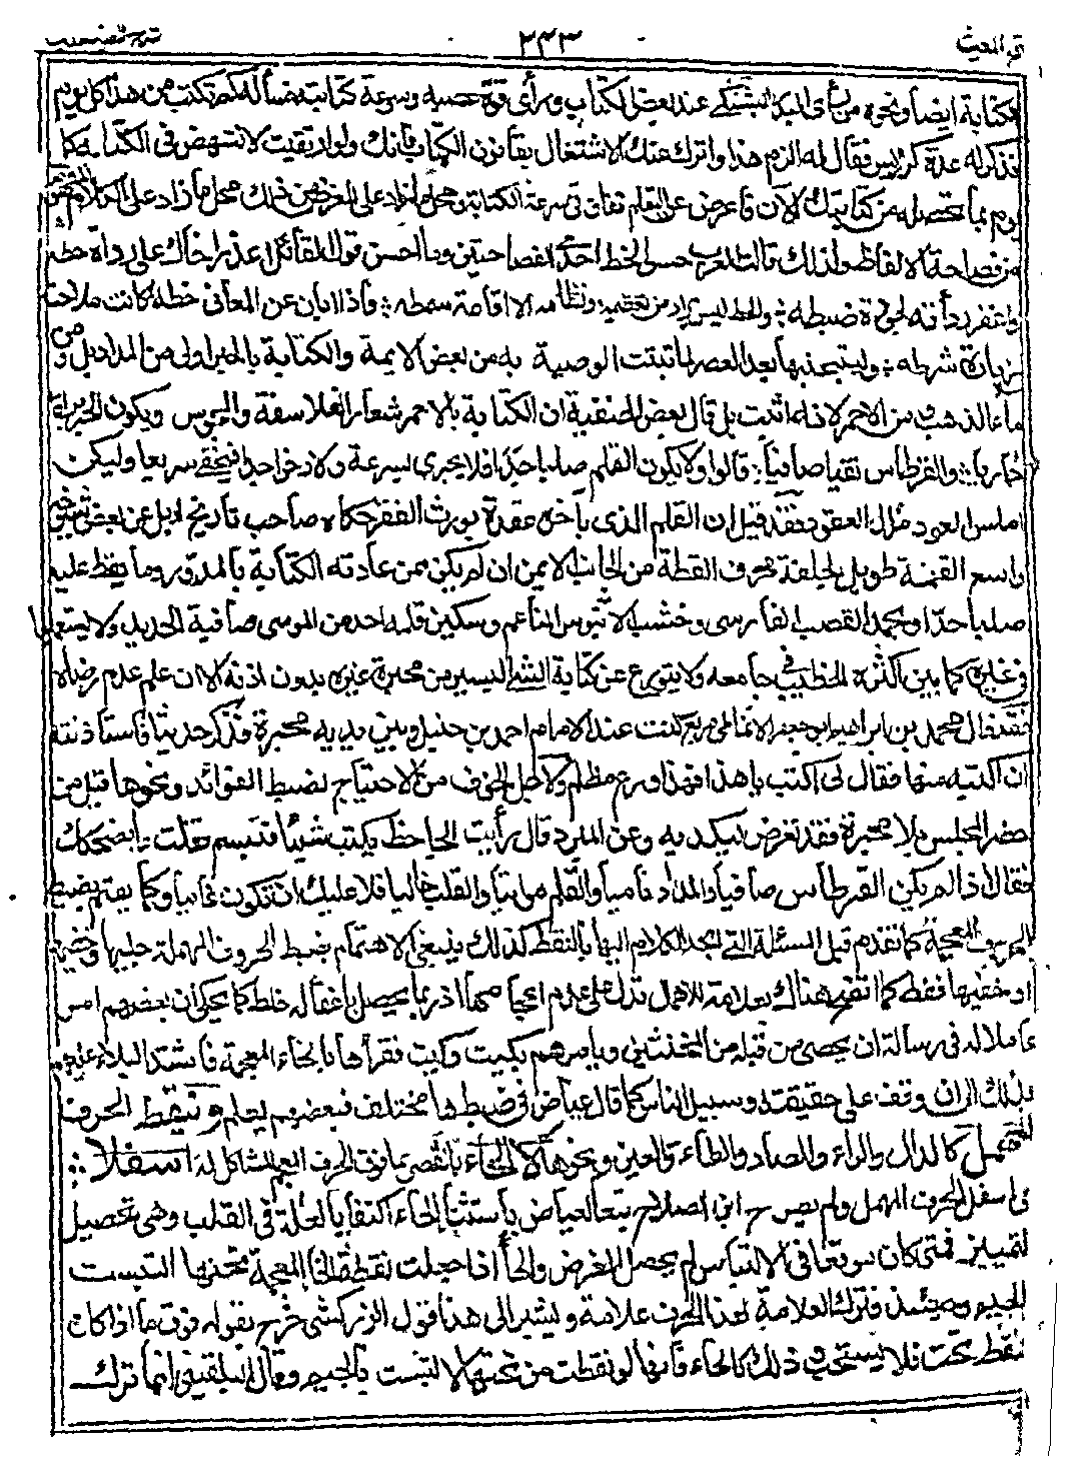 ٢٤٣
الكتابة ايضا ونحوه من رأى البدر البشتكي عند بعض الكتاب ورأى قوة عصبه وسرعة كتابته فسأله كم تكتب من هذا كل يوم
فذكر له عدة كراريس فقال له الزم هذا واترك عنك الاشتغال بقانون الكتاب فانك ولو ارتقيت لا تنهض في الكتابة كل
يوم بما تحصله من كتابتك الآن فاعرض عن التعلم ففاق في سرعة الكتابة ومحل ما زاد على الغرض من ذلك محل ما زاد على الكلام المفهوم
من فصاحة الالفاظ ولذلك قالت العرب حسن الخط احدى الفصاحتين وما احسن قول القائل اعذر اخاك على رداءة خطه
واغفر رداءته لجودة ضبطه والخط ليس يراد من تعظيمه ونظامه الا اقامة سمطه فاذا ابان عن المعاني خطه كانت ملاحته
زيادة شرطه وليتجنبها بعد العصر لما ثبتت الوصية به من بعض الايمة والكتابة بالحبر اولى من المداد بل ومن
ماء الذهب من الاحمر لانه اثبت بل قال بعض الحنفية ان الكتابة بالاحمر شعار الفلاسفة والمجوس ويكون الحبر براقا
جاريا والقرطاس نقيا صافيا قالوا ولا يكون القلم صلبا جدا فلا يجري بسرعة ولا رخوا جدا فيحفى سريعا وليكن
املس العود مزال العقود فقد قيل ان القلم الذي بآخره عقدة يورث الفقر حكاه صاحب تاريخ اربل عن بعض شيوخه
واسع الفتحة طويل الجلفة محرف القطة من الجانب الايمن ان لم يكن ممن عادته الكتابة بالمدور وما يقط عليه
صلبا جدا ويحمد القصب الفارسي وخشب الابنوس الناعم وسكين قلمه احد من الموسى صافية الحديد ولا يستعملها
في غيره كما بين اكثره الخطيب في جامعه ولا يتورع عن كتابة الشئ اليسير من محبرة غيره بدون اذنه الا ان علم عدم رضاه
فقد قال محمد بن ابراهيم ابو جعفر الانماطي مربع كنت عند الامام احمد بن حنبل وبين يديه محبرة فذكر حديثا فاستأذنته
ان اكتبه منها فقال لي اكتب يا هذا فهذا ورع مظلم ولاجل الخوف من الاحتياج لضبط الفوائد ونحوها قيل من
حضر المجلس بلا محبرة فقد تعرض للكدية وعن المبرد قال رأيت الجاحظ يكتب شيئا فتبسم فقلت ما يضحكك
فقال اذا لم يكن القرطاس صافيا والمداد ناميا والقلم مواتيا والقلب خاليا فلا عليك ان تكون غانيا وكما يهتم بضبط
الحروف المعجمة كما تقدم قبل المسئلة التي انجد الكلام اليها بالنقط كذلك ينبغي الاهتمام بضبط الحروف المهملة جليها وخفيها
او خفيها فقط كما اتضح هناك بعلامة للاهمال تدل على عدم اعجامها اذ ربما يحصل باغفاله خلط كما يحكى ان بعضهم امر
عاملا له في رسالة ان يحصي من قبله من المخنثين ويامرهم بكيت وكيت فقرأها بالخاء المعجمة فاشتد البلاء عليهم
بذلك الى ان وقف على حقيقته وسبيل الناس كما قال عياض في ضبطها مختلف فبعضهم يعلم وينقط الحرف
المهمل كالدال والراء والصاد والطاء والعين ونحوها لا الحاء بالقصر بما فوق الحرف المعجم المشاكل له اسفلا
اي اسفل الحرف المهمل ولم يصرح ابن الصلاح تبعا لعياض باستثناء الحاء اكتفاء بالعلة في القلب وهي تحصيل
التمييز فمتى كان موقعا في الالتباس لم يحصل الغرض والحاء اذا جعلت نقطة الخاء المعجمة تحتها التبست
بالجيم وحينئذ فترك العلامة لهذا الحرف علامة ويشير الى هذا قول الزركشي خرج بقوله فوق ما اذا كان
النقط تحت فلا يستحب وذلك كالحاء فانها لو نقطت من تحتها لالتبست بالجيم وقال البلقيني انما ترك